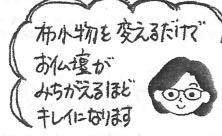 布小物を変えるだけで
お仏壇が
みちがえるほど
キレイになります